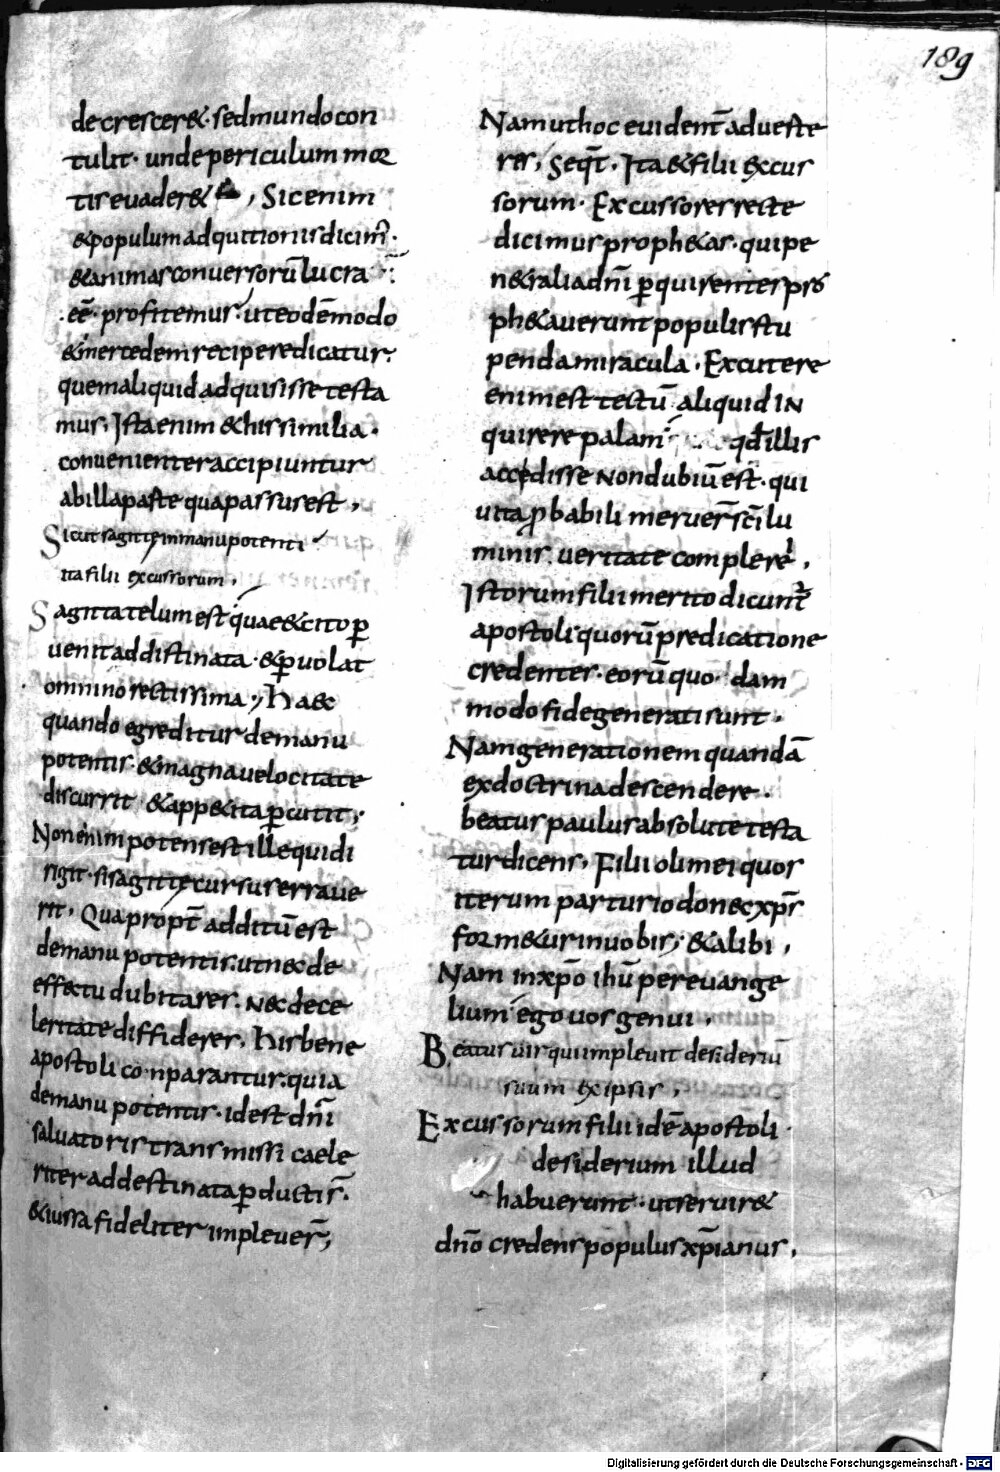 189
decrescer&. sedmundocon
tulit. undepericulum mor
tiseuader&, Sicenim
&populumadquitioriisdicim̄.
&animasconuersorū lucra
eē. profitemur. uteodēmodo
&mercedemreciperedicatur.
quemaliquidadquisissetesta
mur. Istaenim &hissimilia.
conuenienteraccipiuntur
abillaparte quapassusest,
Sicutsagittęinmanupotenti
itafilii excussorum,
Sagittatelumest quae&citop̄
uenitaddistinata. &p̄uolat
omninorectissima; Ha&
quando egreditur demanu
potentis. &magnauelocitate
discurrit &app&itap̄cutit;
Nonenimpotensest illequidi
rigit. sisagittęcursuserraue
rit, Quapropt̄ additūest
demanu potentis. utn&de
eff&tudubitares. N&dece
leritatediffideres, hisbene
apostoli conparantur. quia
demanu potentis. idest dn̄i
saluatoris transmissi caele
riter addestinatap̄ductis̄.
&iussa fideliter impleuer̄;
Namuthoc euident̄ aduerte
res, Seqt̄. Ita&filii excus
sorum. Excussoresrecte
dicimusproph&as. quipe
n&raliadn̄i p̄quirentes pro
ph&auerunt populisstu
pendamiracula. Excutere
enimest tectū aliquid IN
quirere palam qd̄ illis
accedisse Nondubiūest. qui
uitap̄babili meruer̄ sc̄i lu
minis ueritate complere,
Istorumfilii merito dicunt̄
apostoli quorū predicatione
credentes. eorū quo dam
modofidegeneratisunt.
Namgenerationemquandā
exdoctrinadescendere.
beatuspaulusabsolutetesta
turdicens, Filiolimei quos
iterum parturiodonecxp̄s
form&urinuobis; &alibi,
Nam inxp̄o ihū perеuange
lium ego uos genui,
Beatus uir quiimpleuit desideriū
suum ex ipsis,
Excussorumfilii idē apostoli
desiderium illud
habuerunt. utseruir&
dn̄o credens populus xp̄ianus,
Digitalisierung gefördert durch die Deutsche Forschungsgemeinschaft - DFG